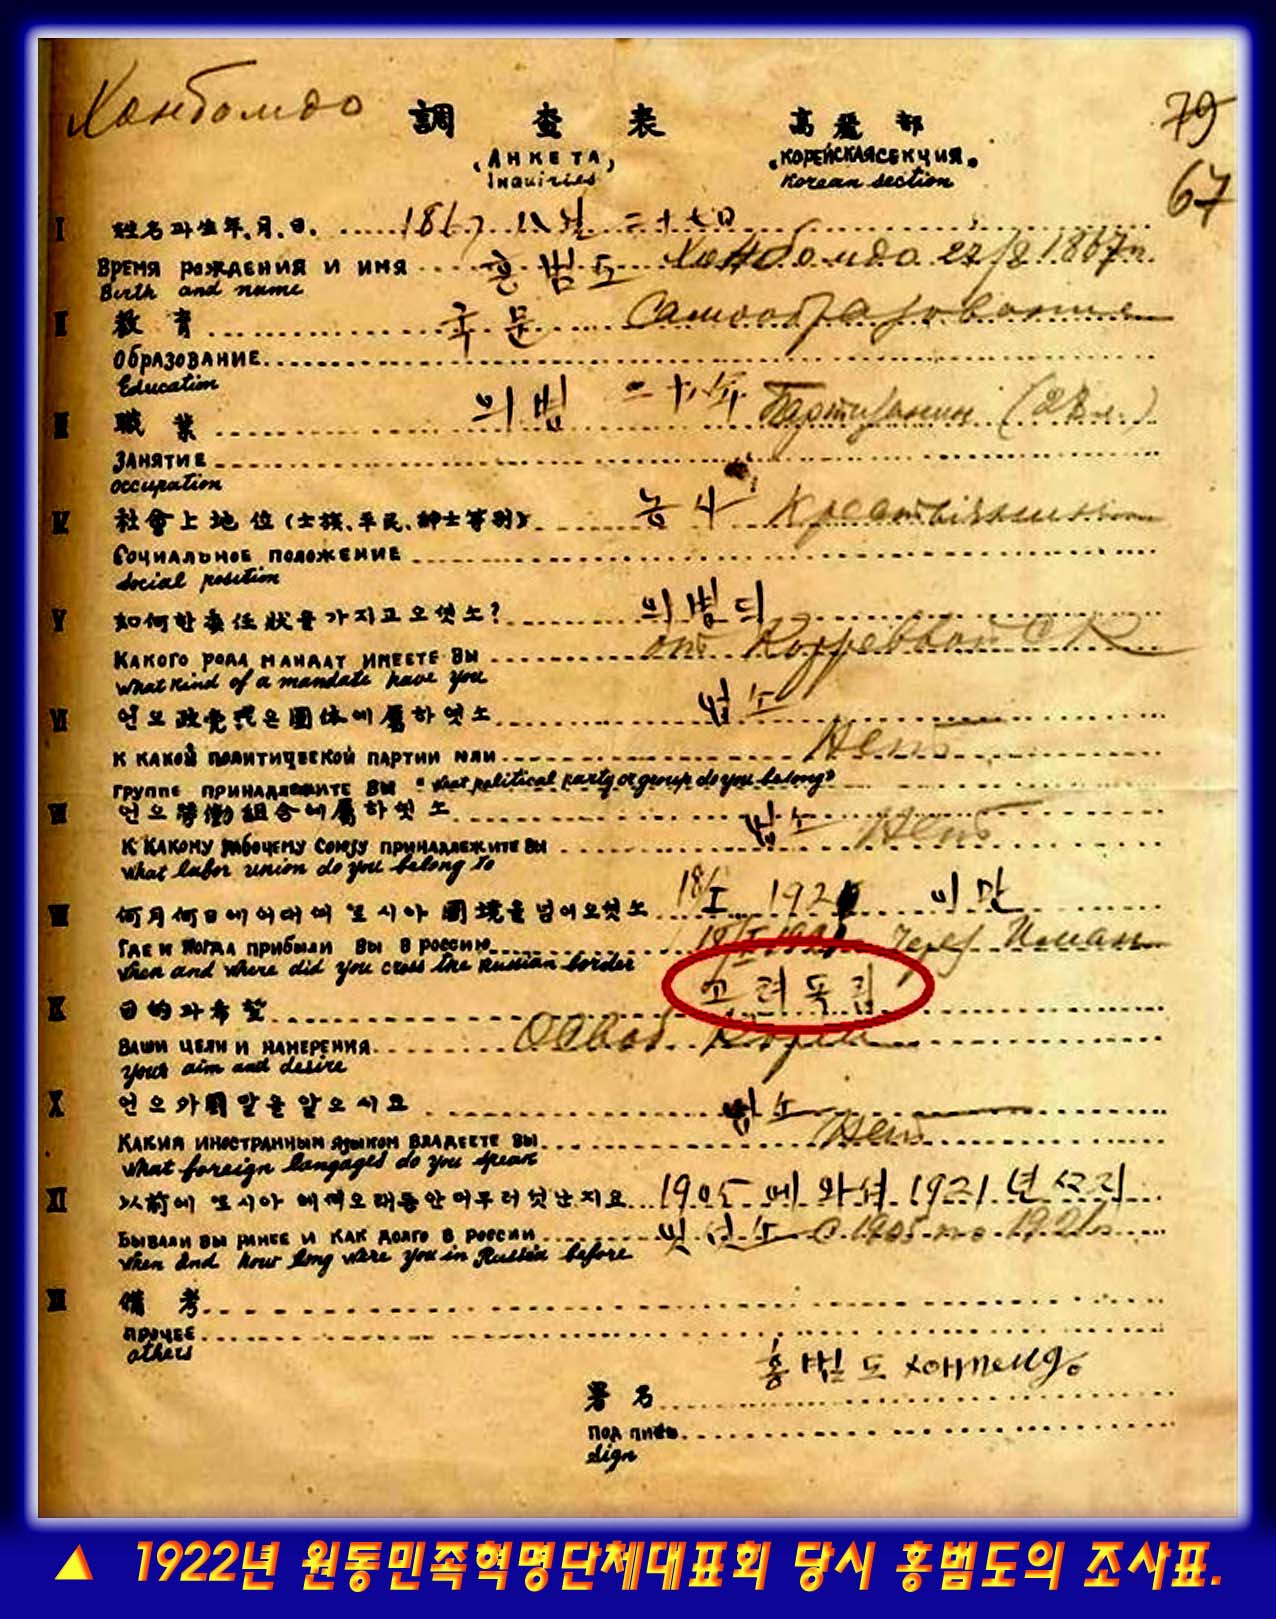 Ханбомдо 調 查 表 高麗部 79
(АНКЕТА) "КОРЕЙСКАЯ СЕКЦИЯ" 67
Inquiries Korean section
I 姓名과 生年.月.日. 1867 八월 二十七日
ВРЕМЯ РОЖДЕНИЯ И ИМЯ 홍범도 Ханбомдо 27/8 1867г.
Birth and name
II 教育 국문 Самообразование
ОБРАЗОВАНИЕ
Education
III 職業 의병 Партизанин
ЗАНЯТИЕ
occupation
IV 社會上地位(士族、平民、紳士等別) 농사 Крестьянин
СОЦИАЛЬНОЕ ПОЛОЖЕНИЕ
social position
V 如何한 委任狀을 가지고 오셧노? 의병듸
КАКОГО РОДА МАНДАТ ИМЕЕТЕ ВЫ от
what kind of a mandate have you
VI 언으 政党 或은 團体에 屬하엿노 업소
К КАКОЙ ПОЛИТИЧЕСКОЙ ПАРТИИ ИЛИ Нет
ГРУППЕ ПРИНАДЛЕЖИТЕ ВЫ "what political party or group do you belong"
VII 언으 勞働組合에 屬하엿노 업소 Нет
К КАКОМУ РАБОЧЕМУ СОЮЗУ ПРИНАДЛЕЖИТЕ ВЫ
what labor union do you belong to
VIII 何月何日에 어대여 로시아 國境을 넘어오셧노 18/I 192 이만
ГДЕ И КОГДА ПРИБЫЛИ ВЫ В РОССИЮ 18/I 192 Иман
when and where did you cross the Russian border
IX 目的과 希望 고려독립
ВАШИ ЦЕЛИ И НАМЕРЕНИЯ Освоб. Кореи
your aim and desire
X 언으 外國말을 알으시요 업소
КАКИМ ИНОСТРАННЫМ ЯЗЫКОМ ВЛАДЕЕТЕ ВЫ Нет
what foreign langages do you speak
XI 以前에 로시아에 여오래동안 머무러 잇난지요 1905에 와셔 1921년
БЫВАЛИ ВЫ РАНЕЕ И КАК ДОЛГО В РОССИИ с 1905 по 1921
when and how long were you in Russia before
XII 備考
ПРОЧЕЕ
others
홍범도
署名
ПОДПИСЬ
sign
▲ 1922년 원동민족혁명단체대표회 당시 홍범도의 조사표.